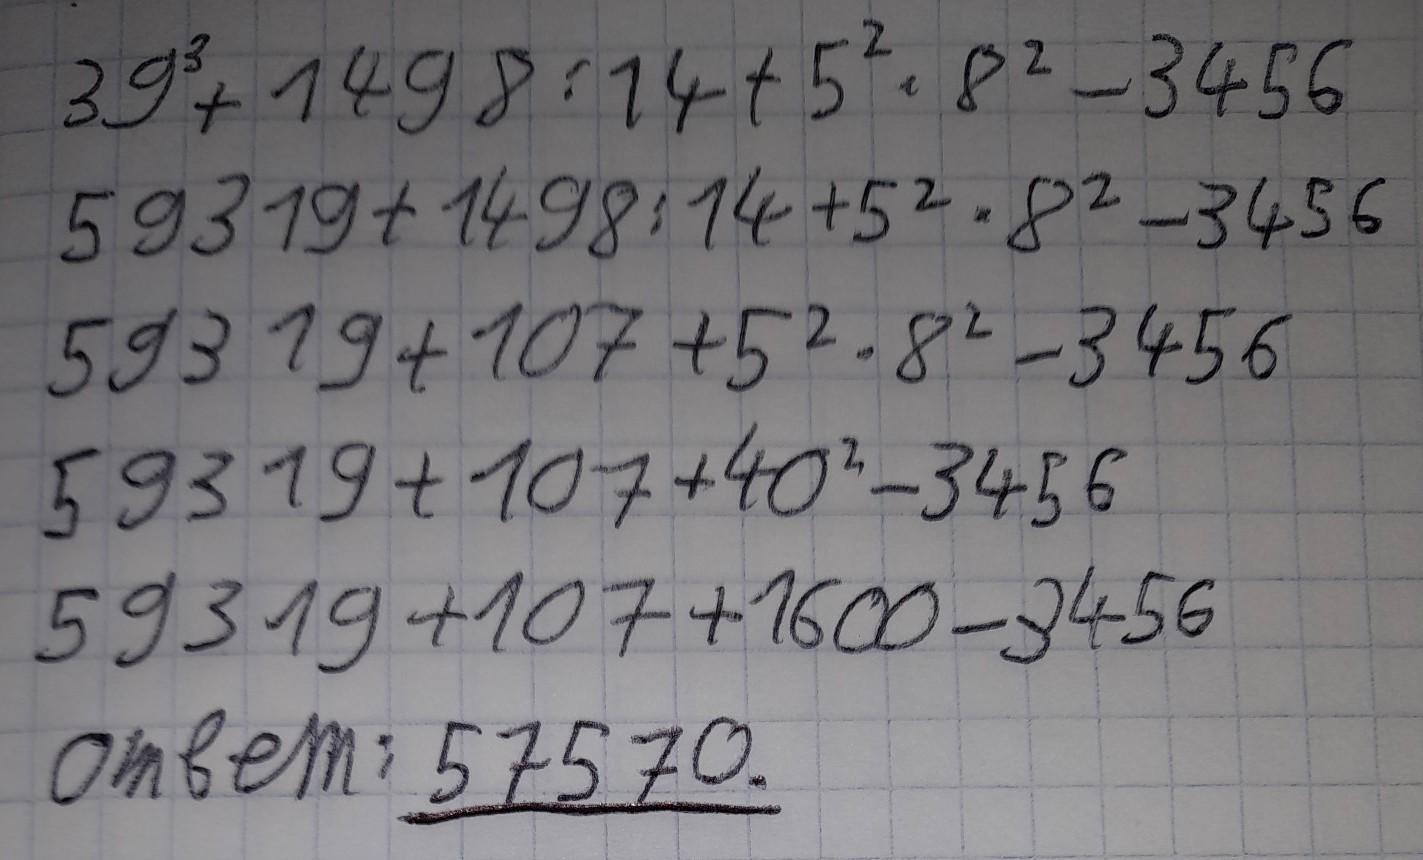 39³+1498:14+5²·8²-3456
59319+1498:14+5²·8²-3456
59319+107+5²·8²-3456
59319+107+40²-3456
59319+107+1600-3456
ответ: 57570.